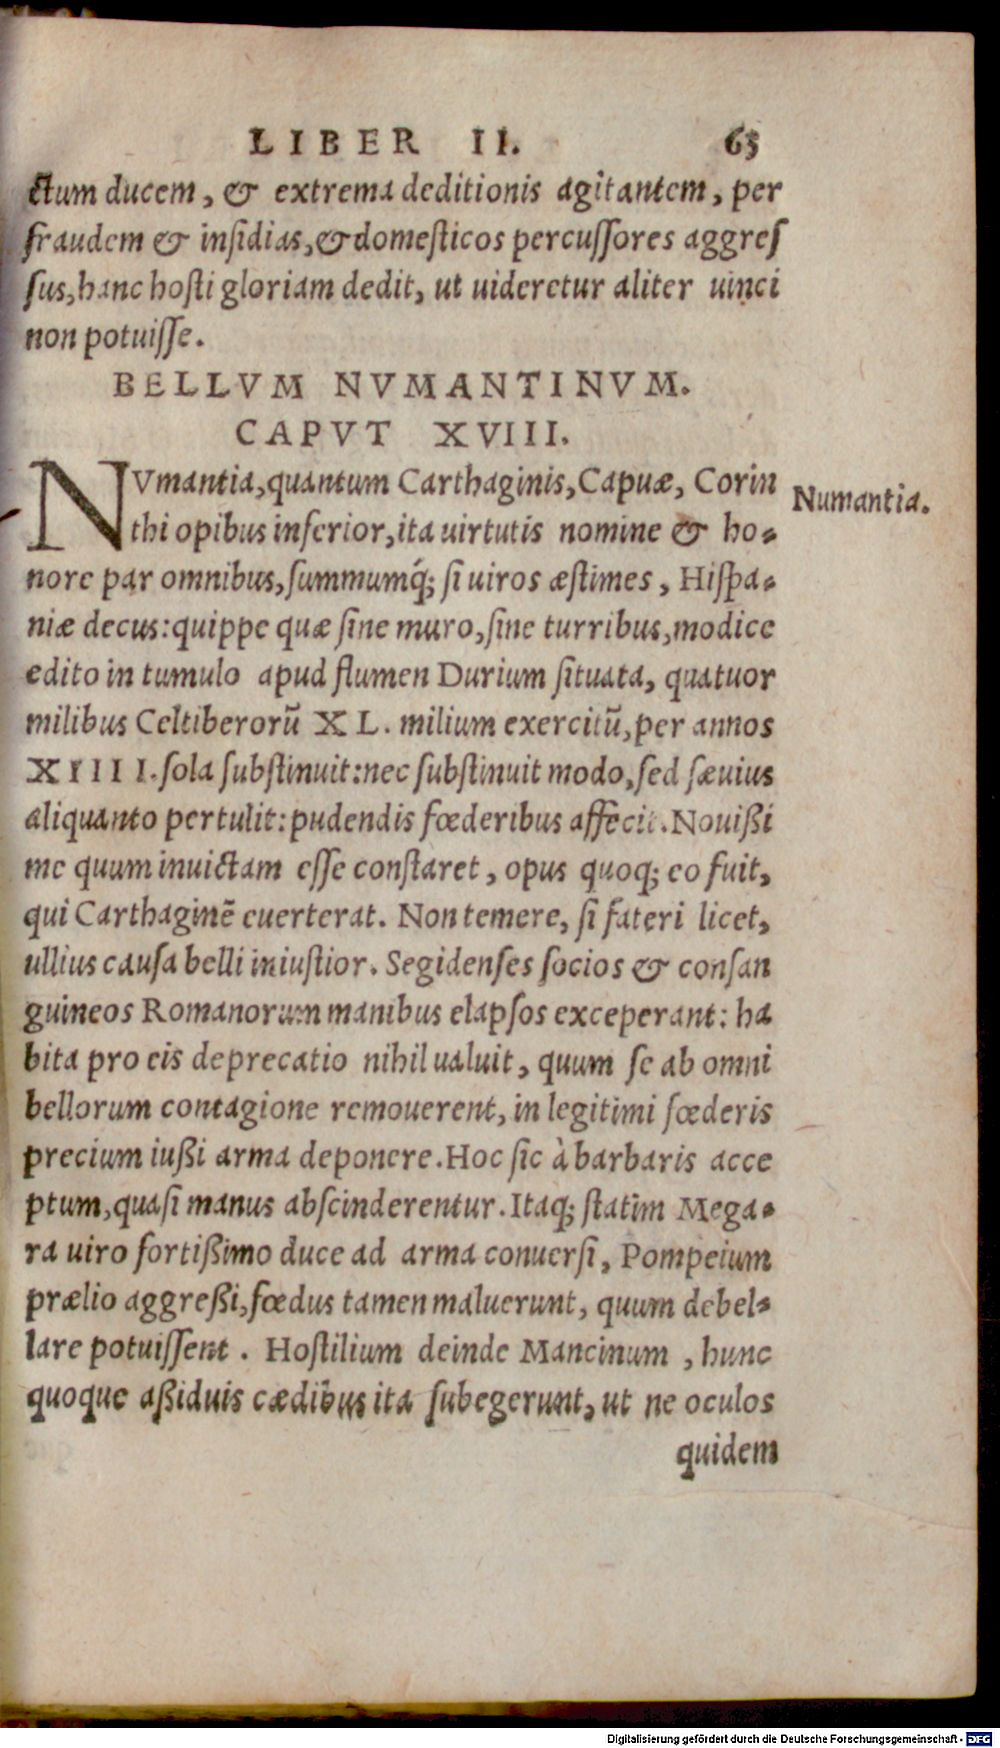 LIBER II. 63
ctum ducem, & extrema deditionis agitantem, per
fraudem & insidias, & domesticos percussores aggres
sus, hanc hosti gloriam dedit, ut uideretur aliter uinci
non potuisse.
BELLVM NVMANTINVM.
CAPVT XVIII.
NVmantia, quantum Carthaginis, Capuæ, Corin
Numantia.
thi opibus inferior, ita uirtutis nomine & ho-
nore par omnibus, summumq́; si uiros æstimes, Hispa-
niæ decus: quippe quæ sine muro, sine turribus, modice
edito in tumulo apud flumen Durium situata, quatuor
milibus Celtiberorū XL. milium exercitū, per annos
XIIII. sola substinuit: nec substinuit modo, sed sæuius
aliquanto pertulit: pudendis fœderibus affecit. Nouißi
me quum inuictam esse constaret, opus quoq; eo fuit,
qui Carthaginē euerterat. Non temere, si fateri licet,
ullius causa belli iniustior. Segidenses socios & consan
guineos Romanorum manibus elapsos exceperant: ha
bita pro eis deprecatio nihil ualuit, quum se ab omni
bellorum contagione remouerent, in legitimi fœderis
precium iußi arma deponere. Hoc sic à barbaris acce
ptum, quasi manus abscinderentur. Itaq; statim Mega-
ra uiro fortißimo duce ad arma conuersi, Pompeium
prælio aggreßi, fœdus tamen maluerunt, quum debel-
lare potuissent. Hostilium deinde Mancinum, hunc
quoque aßiduis cædibus ita subegerunt, ut ne oculos
quidem
Digitalisierung gefördert durch die Deutsche Forschungsgemeinschaft - DFG